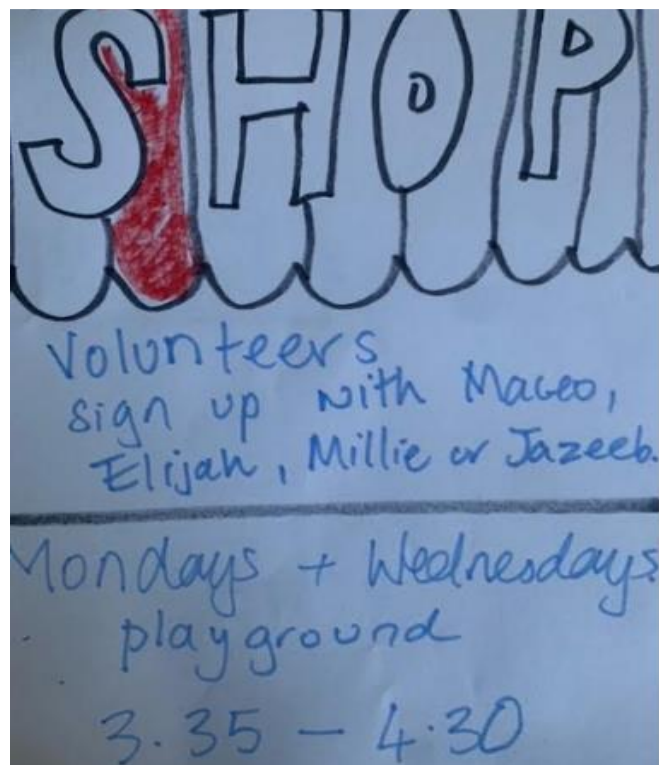 SHOP
Volunteers
sign up with Maceo,
Elijah, Millie or Jazeeb.
Mondays + Wednesdays
playground
3.35 – 4.30